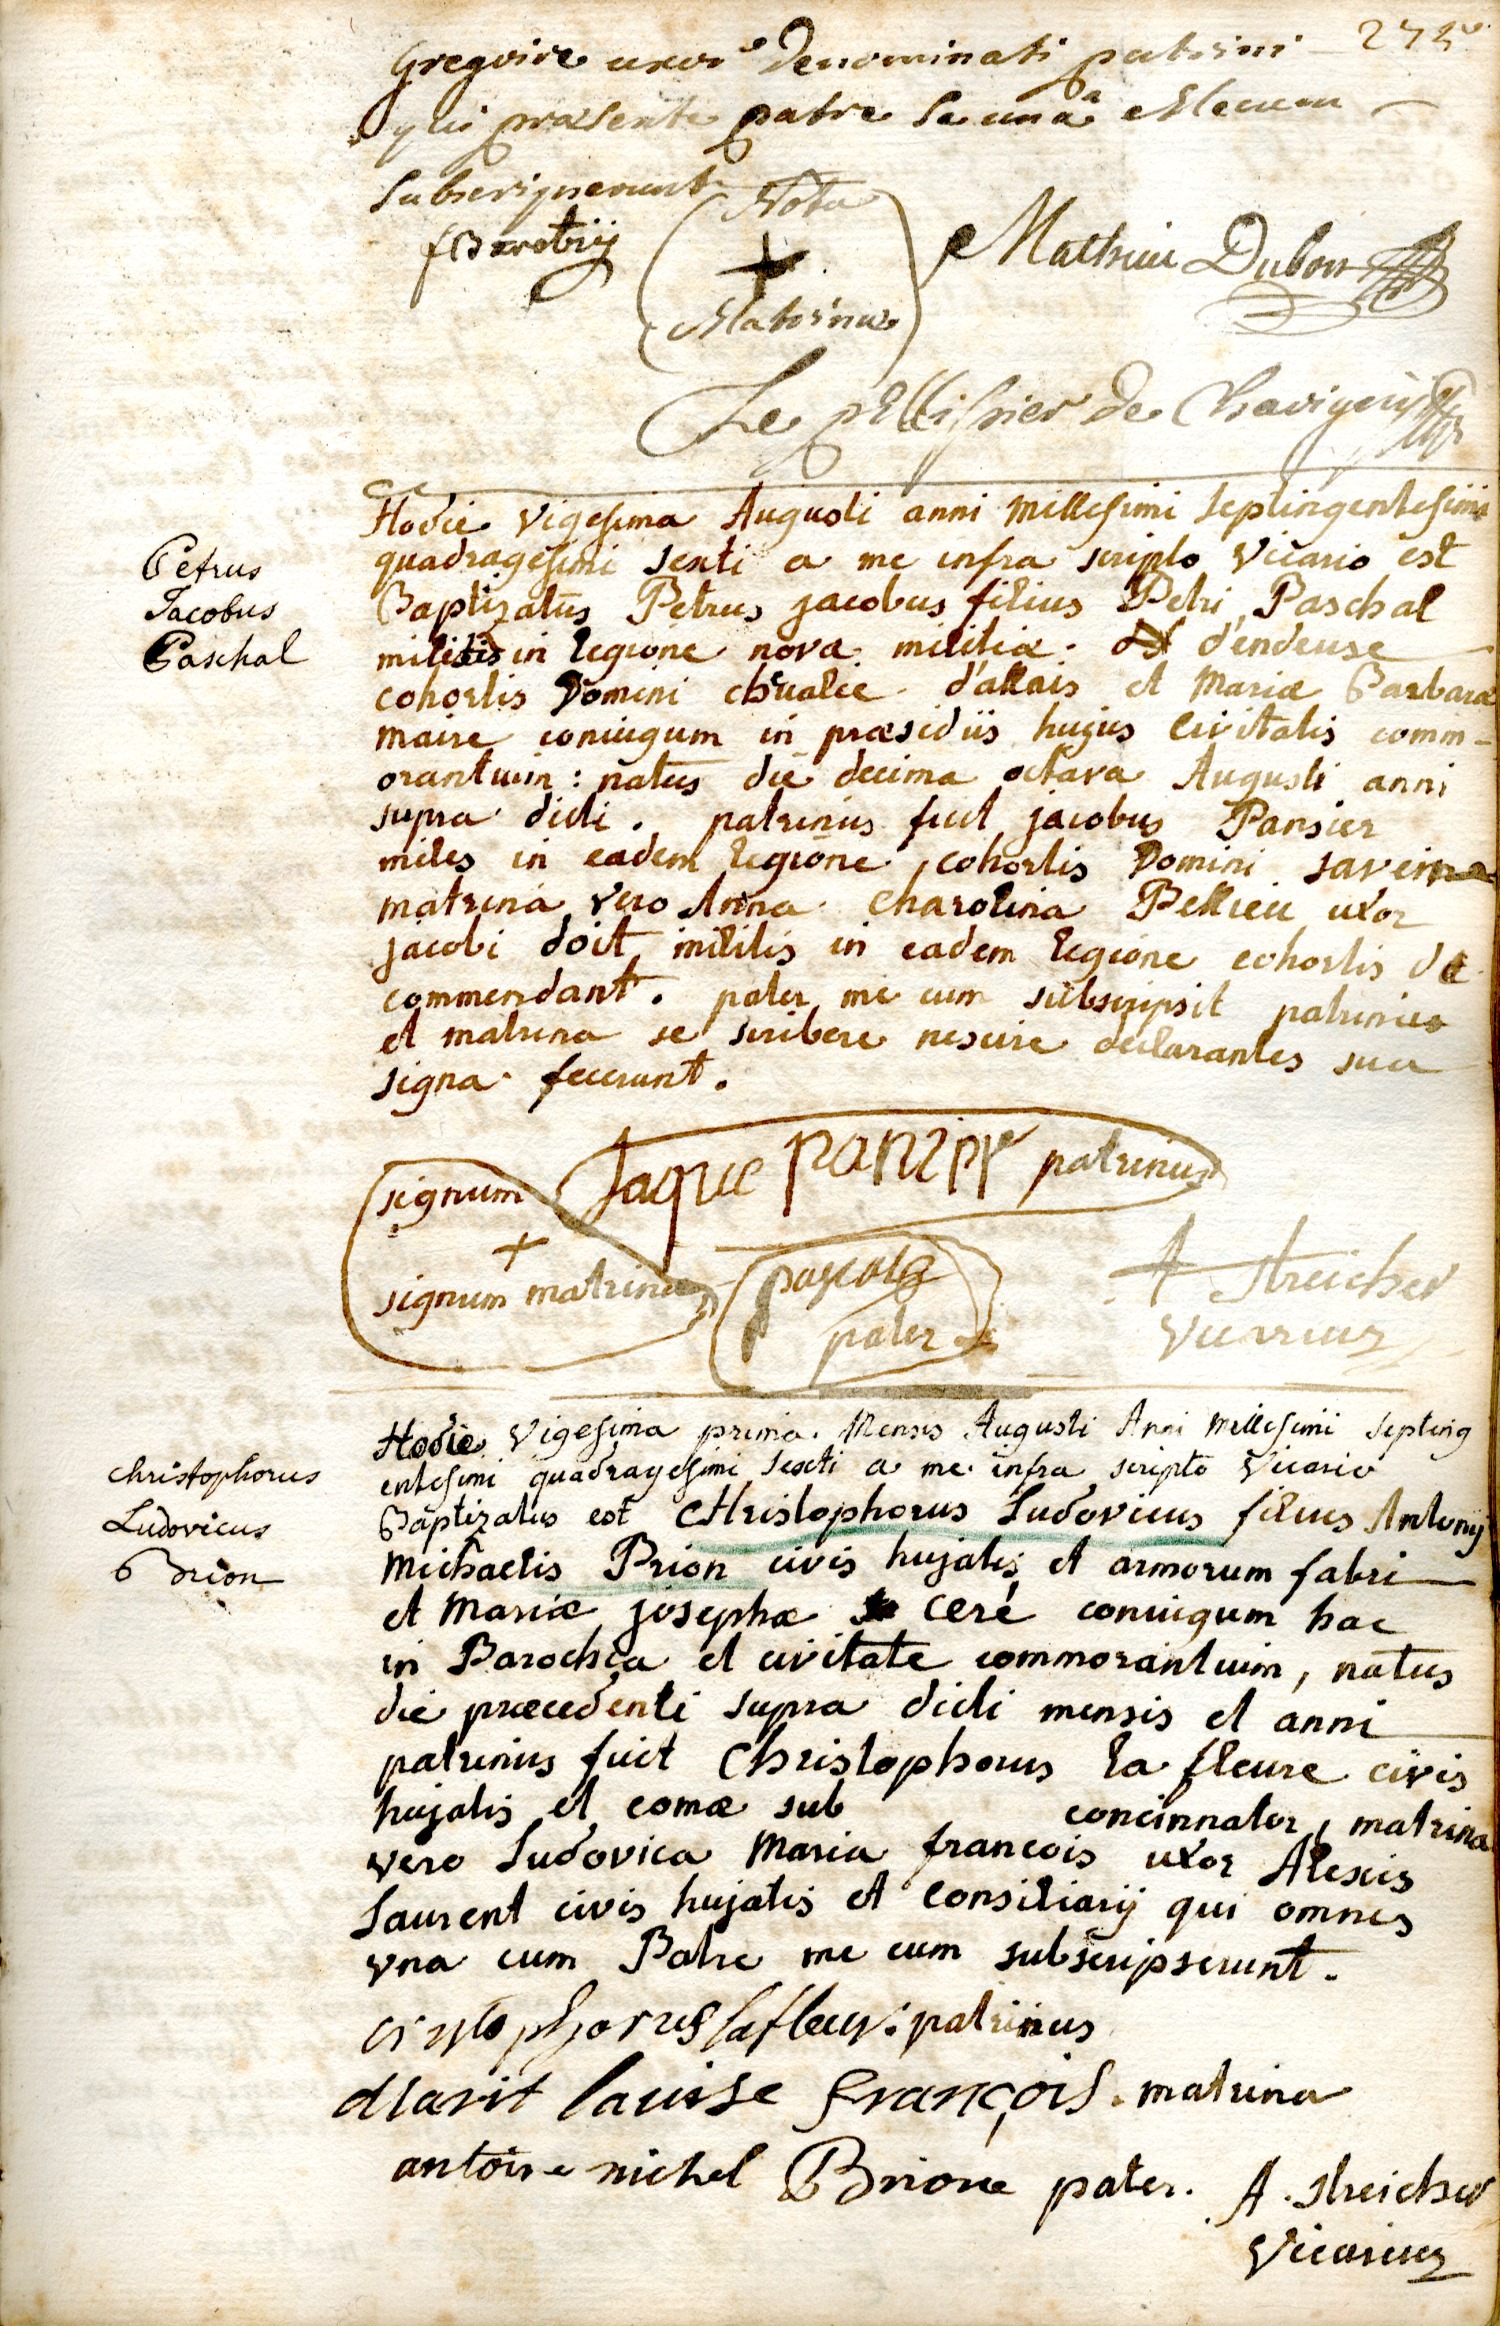 Gregoire uxor denominati patrini
qui præsente patre se una Mecum
subsignerunt
Nota
+
Matrinæ
Mathieu Dubois
Le pellissier de Chavigny
Petrus
Jacobus
Paschal
Hodie vigesima Augusti anni millesimi septingentesimi
quadragesimi sexti a me infra scripto vicario est
Baptizatus Petrus jacobus filius Petri Paschal
militis in legione nova militiæ d'endeuse
cohortis Domini d'allais et Mariæ Barbaræ
maire coniugum in præsidiis hujus civitatis comm-
orantium : natus die decima octava Augusti anni
supra dicti . patrinus fuit jacobus Pansier
miles in eadem legione, cohortis Domini
matrina vero Anna Charolina Pellieu uxor
jacobi doit militis in eadem legione cohortis de
commendant . pater me cum subscripsit patrinus
et matrina se scribere nescire declarantes sua
signa fecerunt .
signum Jaque panzier patrinus
+
signum matrinæ
pascals
pater
A Streicher
Vicarius
Christophorus
Ludovicus
Brion
Hodie vigesima prima Mensis Augusti Anni millesimi septing
entesimi quadragesimi sexti a me infra scripto vicario
Baptizatus est Christophorus Ludovicus filius Antonij
Michaelis Prion civis hujatis et armorum fabri
et Mariæ josephæ Ceré coniugum hac
in Parochia et civitate commorantium, natus
die præcedenti supra dicti mensis et anni
patrinus fuit Christophorus la fleure civis
hujatis et comæ sub concinnator, matrina
vero Ludovica Maria francois uxor Alexis
Laurent civis hujatis et Consiliarij qui omnes
una cum Patre me cum subscripserunt .
cristophorus lafleur : patrinus
Marit Louisse françois . matrina
antoine michel Brione pater . A . Streicher
Vicarius